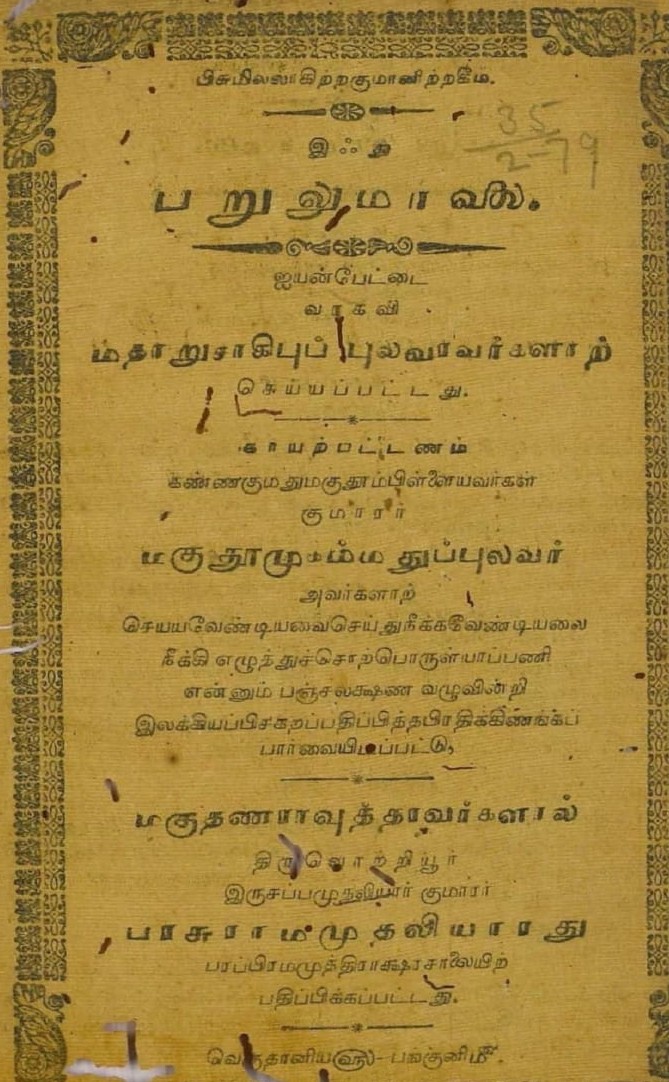 பிசுமில்லாகிற்றகுமானிற்றகீம்.
35
2-79
இஃது
பறுலுமாலை.
ஐயன்பேட்டை
வரகவி
மதாறுசாகிபுப் புலவரவர்களாற்
செய்யப்பட்டது.
காயற்பட்டணம்
கண்ணகுமதுமகுதூம்பிள்ளையவர்கள்
குமாரர்
மகுதூமுகம்மதுப்புலவர்
அவர்களாற்
செய்யவேண்டியவைசெய்துநீக்கவேண்டியவை
நீக்கி எழுத்துச்சொற்பொருள்யாப்பணி
என்னும் பஞ்சலக்ஷண வழுவின்றி
இலக்கியப்பிசகறப்பதிப்பித்தபிரதிக்கிணங்கப்
பார்வையிடப்பட்டு,
மகுதணராவுத்தரவர்களால்
திருவொற்றியூர்
இருசப்பமுதலியார் குமாரர்
பரசுராமமுதலியாரது
பரப்பிரமமுத்திராக்ஷரசாலையிற்
பதிப்பிக்கப்பட்டது.
வெகுதானிய௵ - பங்குனி௴.